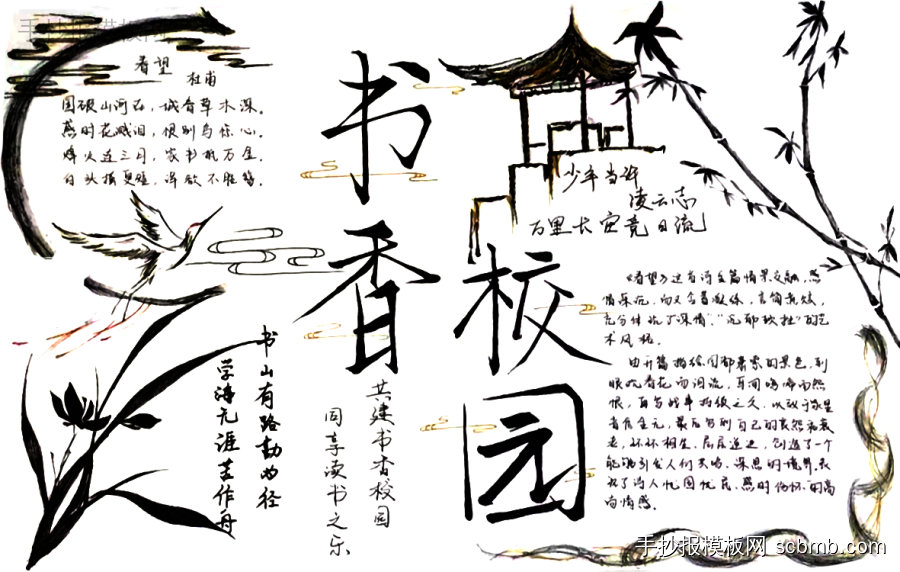 手抄报模板网
春望
杜甫
国破山河在，城春草木深。
感时花溅泪，恨别鸟惊心。
烽火连三月，家书抵万金。
白头搔更短，浑欲不胜簪。
书香校园
少年当许
凌云志
万里长空竞日流
《春望》这首诗全篇情景交融，感
情深沉，而又含蓄凝练，言简意赅，
充分体现了深情“沉郁顿挫”的艺
术风格。
由开篇描绘国都萧索的景色，到
眼观春花而泪流，耳闻鸟鸣而怨
恨，再写战事持续之久，以致于家里
音信全无，最后写到自己的哀怨和衰
老，环环相生、层层递进，创造了一个
能够引发人们共鸣、深思的境界，表
现了诗人忧国忧民、感时伤怀的高
尚情感。
书山有路勤为径
学海无涯苦作舟
共建书香校园
同享读书之乐
手抄报模板网 scbmb.com